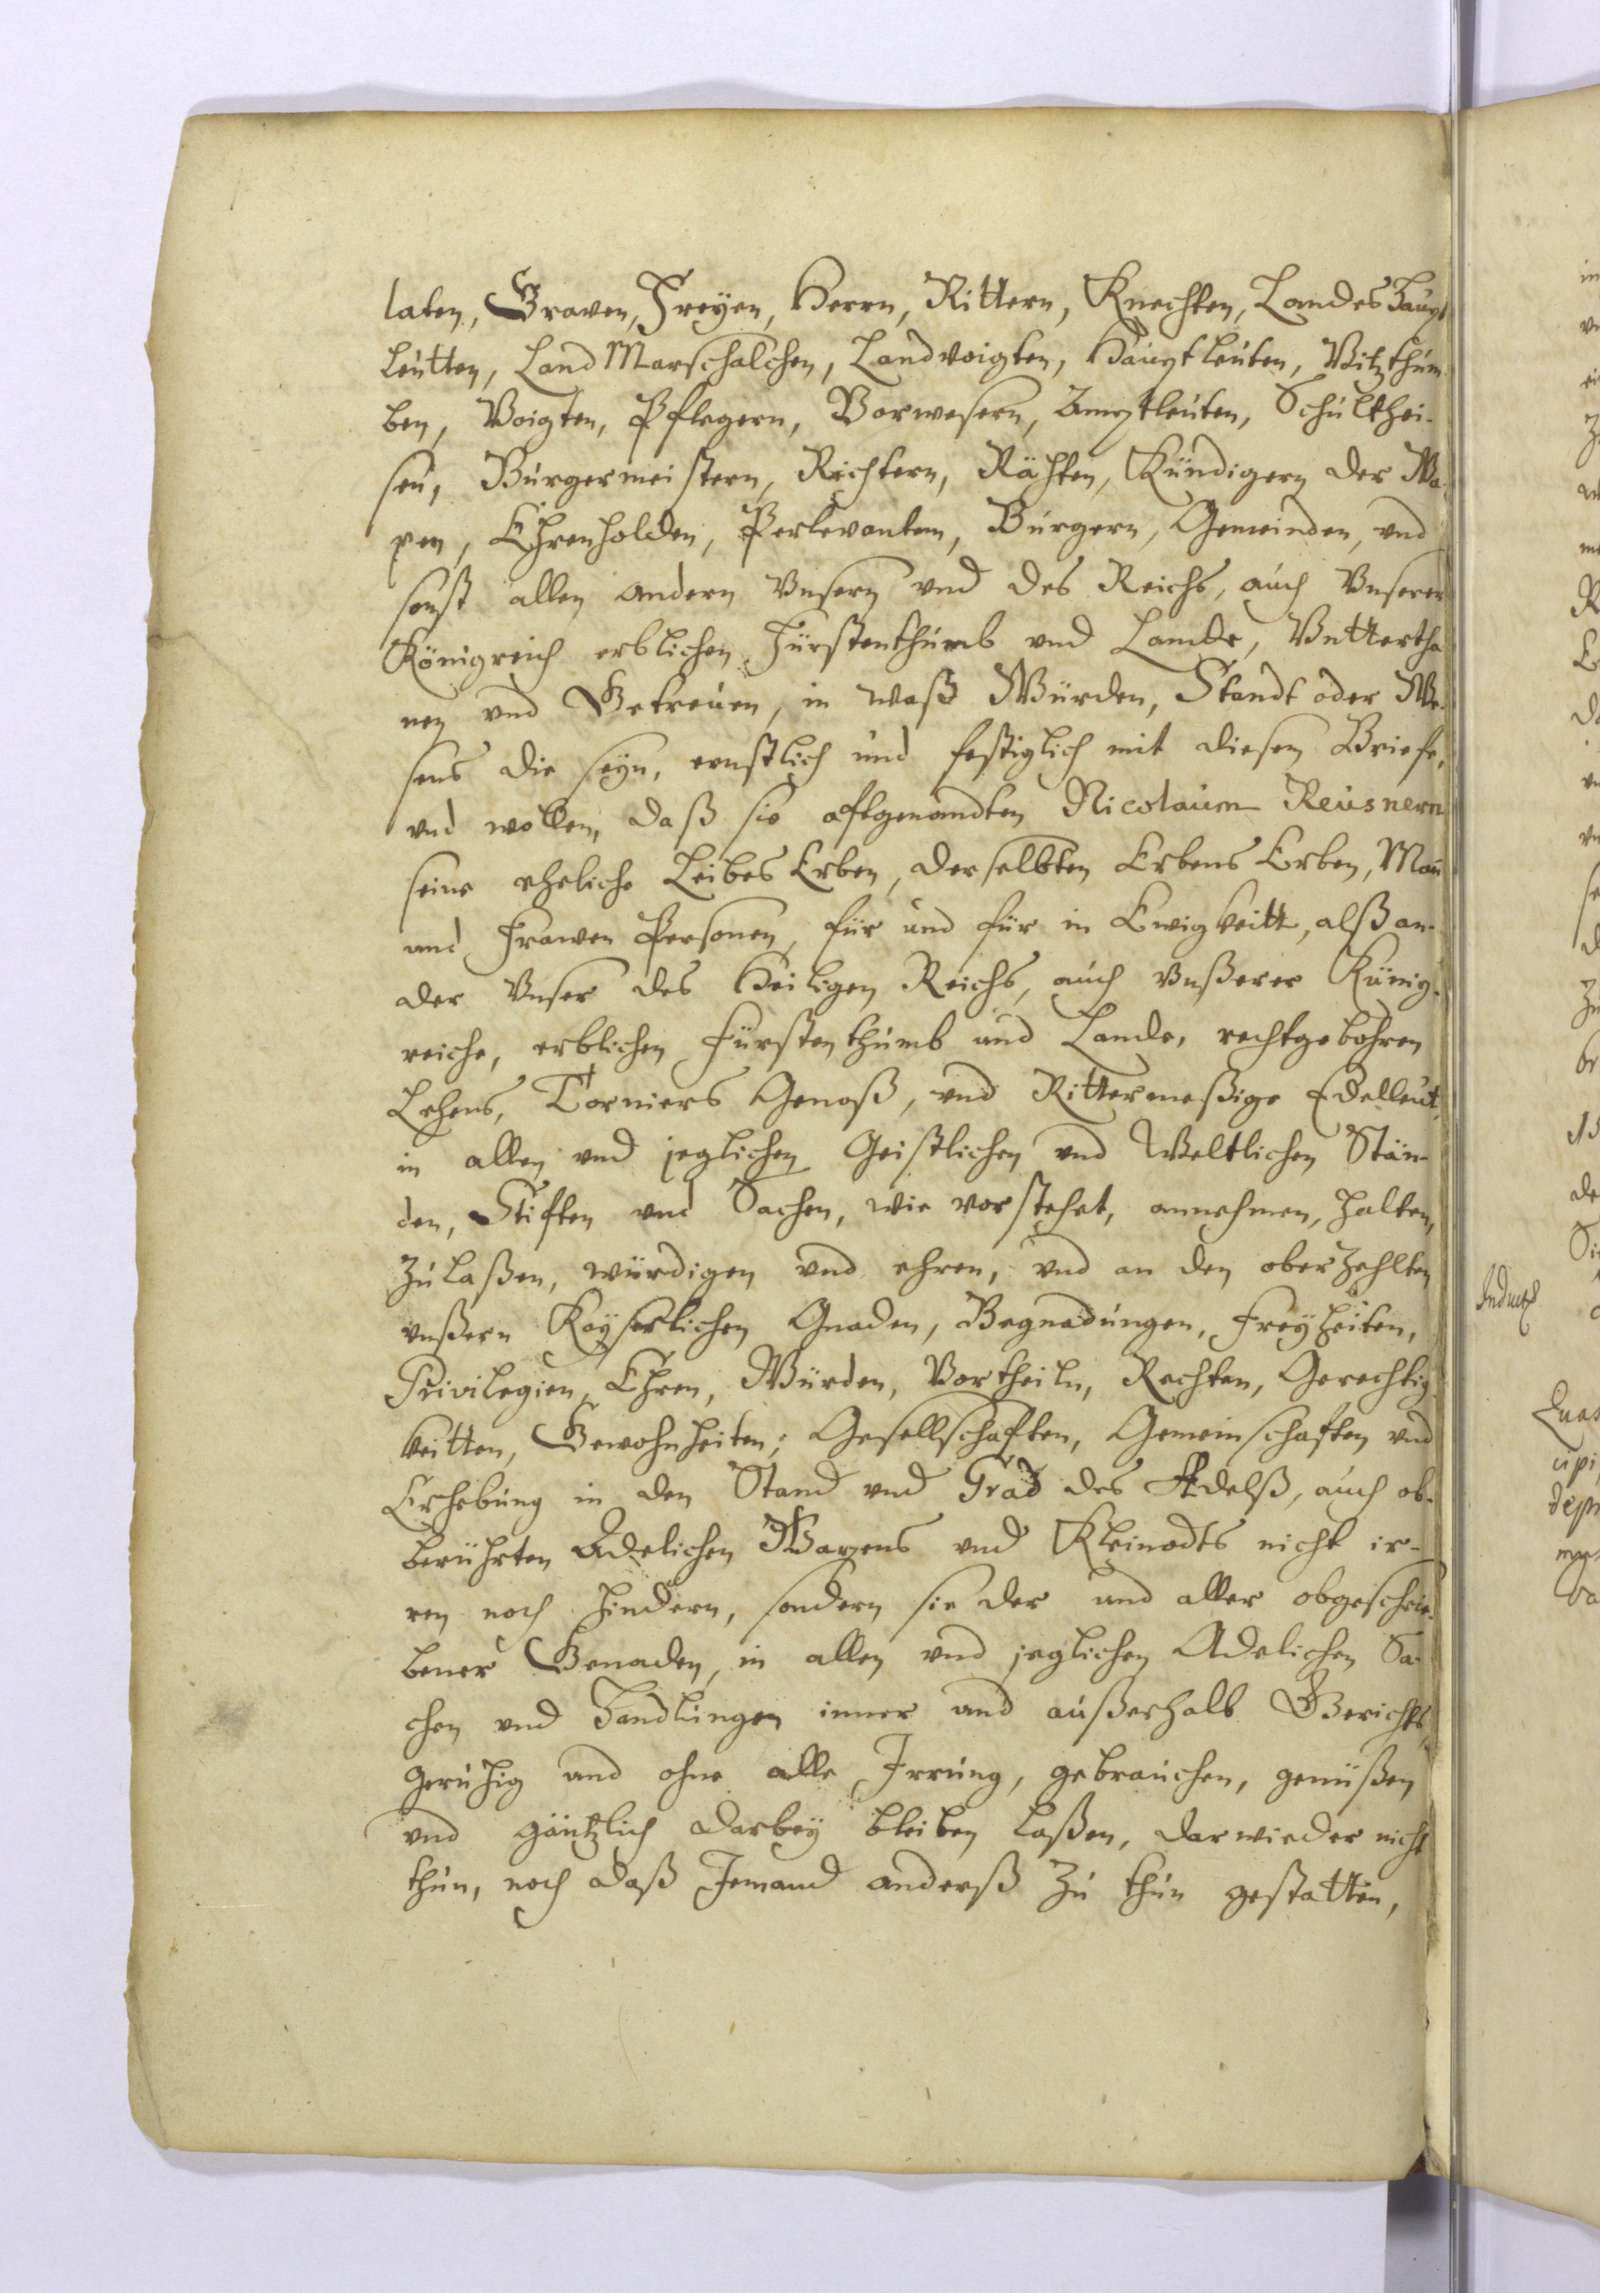 laten, Graven, Freyen, Herrn, Rittern, Knechten, Landes Haupt
leutten, Land Marschalchen, Landvoigten, Hauptleuten, Vitzthum-
ben, Voigten, Pflegern, Verwesern, Amptleuten, Schulthei-
sen, Burgermeistern, Richtern, Rähten, Kündigern der Wa-
pen, Ehrenholden, Persevanten, Burgern, Gemeinden, vnd
sonst allen andern Vnsern vnd des Reichs, auch Vnserer
Königreich erblichen Fürstenthumb vnd Lande, Vnttertha
nen vnd Getreuen, in waß Würden, Standt oder We-
sens die seyn, ernstlich und festiglich mit diesen Briefe,
vnd wollen, daß sie oftgenandten Nicolaum Reusnern
seine eheliche Leibes Erben, derselbten Erbens Erben, Man
und Frawen Personen, für und für in Ewigkeitt, alß an-
der Vnser des Heiligen Reichs, auch vnßerer Künig-
reiche, erblichen Fürstenthumb und Lande, rechtgebohren
Lehens, Torniers Genoß, vnd Rittermeßige Edelleut,
in allen vnd jeglichen Geistlichen vnd Weltlichen Stän-
den, Stiften vnd Sachen, wie vorstehet, annehmen, halten,
zulaßen, würdigen vnd ehren, vnd an den oberzehlten
vnßern Kayserlichen Gnaden, Begnadungen, Freyheiten,
Privilegien, Ehren, Würden, Vortheiln, Rechten, Gerechtig
keitten, Gewohnheiten; Gesellschaften, Gemeinschaften vnd
Erhebung in den Stand vnd Grad des Adelß, auch ob-
berührten Adelichen Wapens vnd Kleinodts nicht ir-
ren noch hindern, sondern sie der und aller obgeschrie-
bener Genaden, in allen vnd jeglichen Adelichen Sa-
chen vnd Handlungen inner und außerhalb Gerichts,
geruhig und ohne alle Irrung, gebrauchen, genüßen
vnd gäntzlich darbey bleiben laßen, darwieder nicht
thun, noch daß Jemand anderß zu thun gestatten,